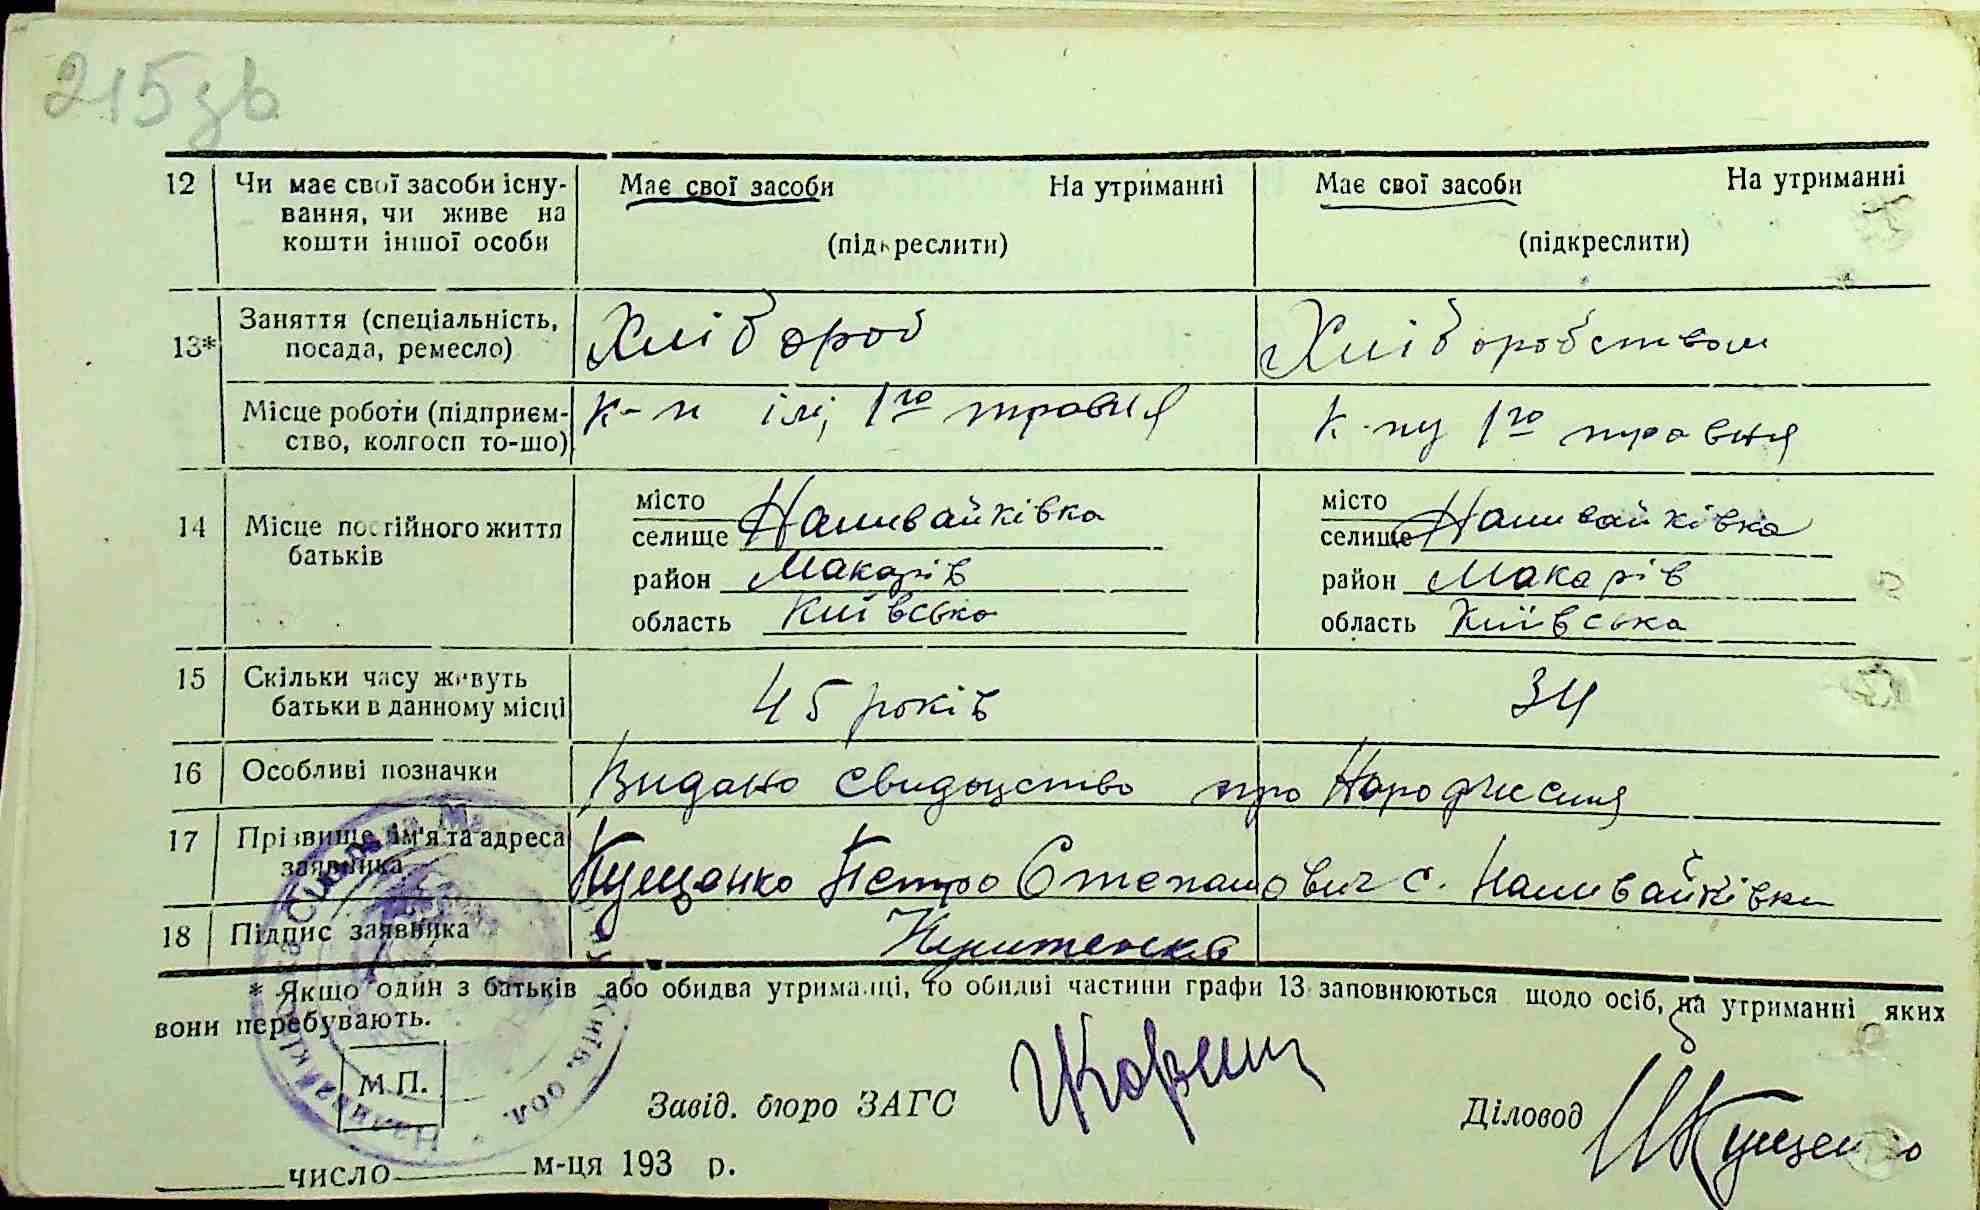 215зв
12 Чи має свої засоби існу- Має свої засоби На утриманні Має свої засоби На утриманні
вання, чи живе на
кошти іншої особи (підкреслити) (підкреслити)
13* Заняття (спеціальність, Хлібороб Хліборобством
посада, ремесло)
Місце роботи (підприєм- к-п ім, 1го травня к-пу 1го травня
ство, колгосп то-що)
14 Місце постійного життя місто місто
батьків селище Наливайківка селище Наливайківка
район Макарів район Макарів
область Київська область Київська
15 Скільки часу живуть 45 років 34
батьки в данному місці
16 Особливі позначки Видано свидоцтво про Народження
17 Прізвище, ім'я та адреса
заявника Кущенко Петро Степанович с. Наливайківка
18 Підпис заявника
* Якщо один з батьків або обидва утриманці, то обидві частини графи 13 заповнюються щодо осіб, на утриманні яких
вони перебувають.
М.П.
Завід. бюро ЗАГС Діловод Кущенко
число м-ця 193 р.
Київ. обл.